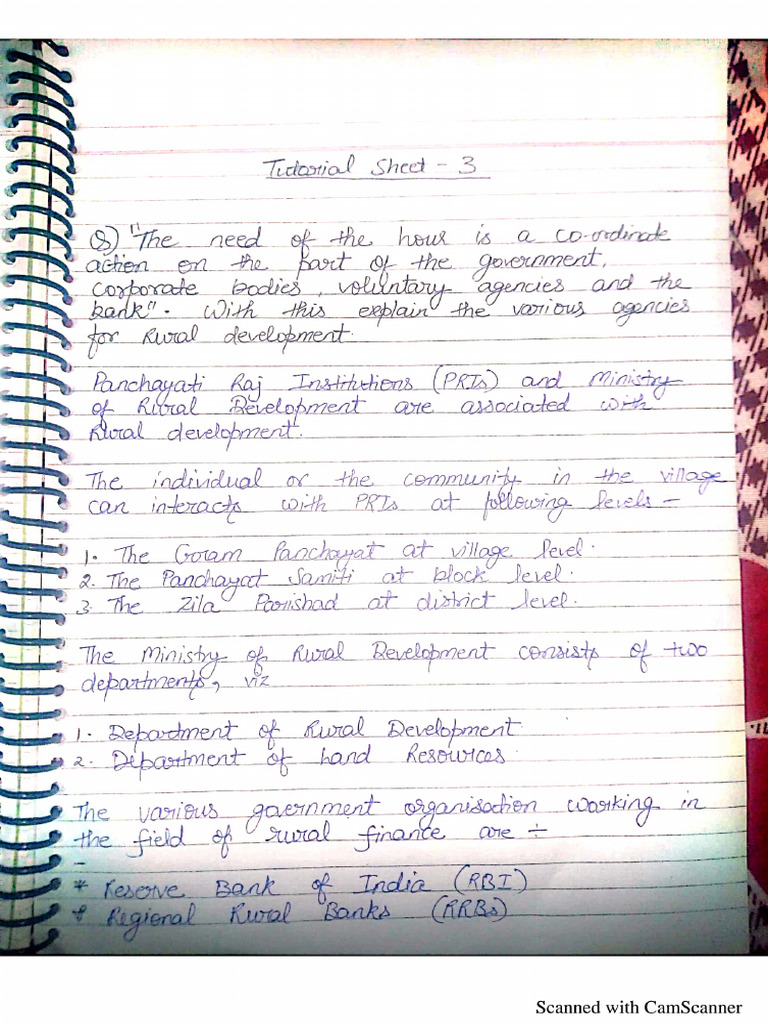 Tutorial Sheet - 3
Q) "The need of the hour is a co-ordinate
action on the part of the government,
corporate bodies, voluntary agencies and the
bank". With this explain the various agencies
for Rural development.
Panchayati Raj Institutions (PRIs) and Ministry
of Rural Development are associated with
Rural development.
The individual or the community in the village
can interacts with PRIs at following levels -
1. The Gram Panchayat at village level.
2. The Panchayat Samiti at block level.
3. The Zila Parishad at district level.
The Ministry of Rural Development consists of two
departments, viz
1. Department of Rural Development
2. Department of Land Resources.
The various government organisation working in
the field of rural finance are ÷
-
* Reserve Bank of India (RBI)
* Regional Rural Banks (RRBs)
Scanned with CamScanner